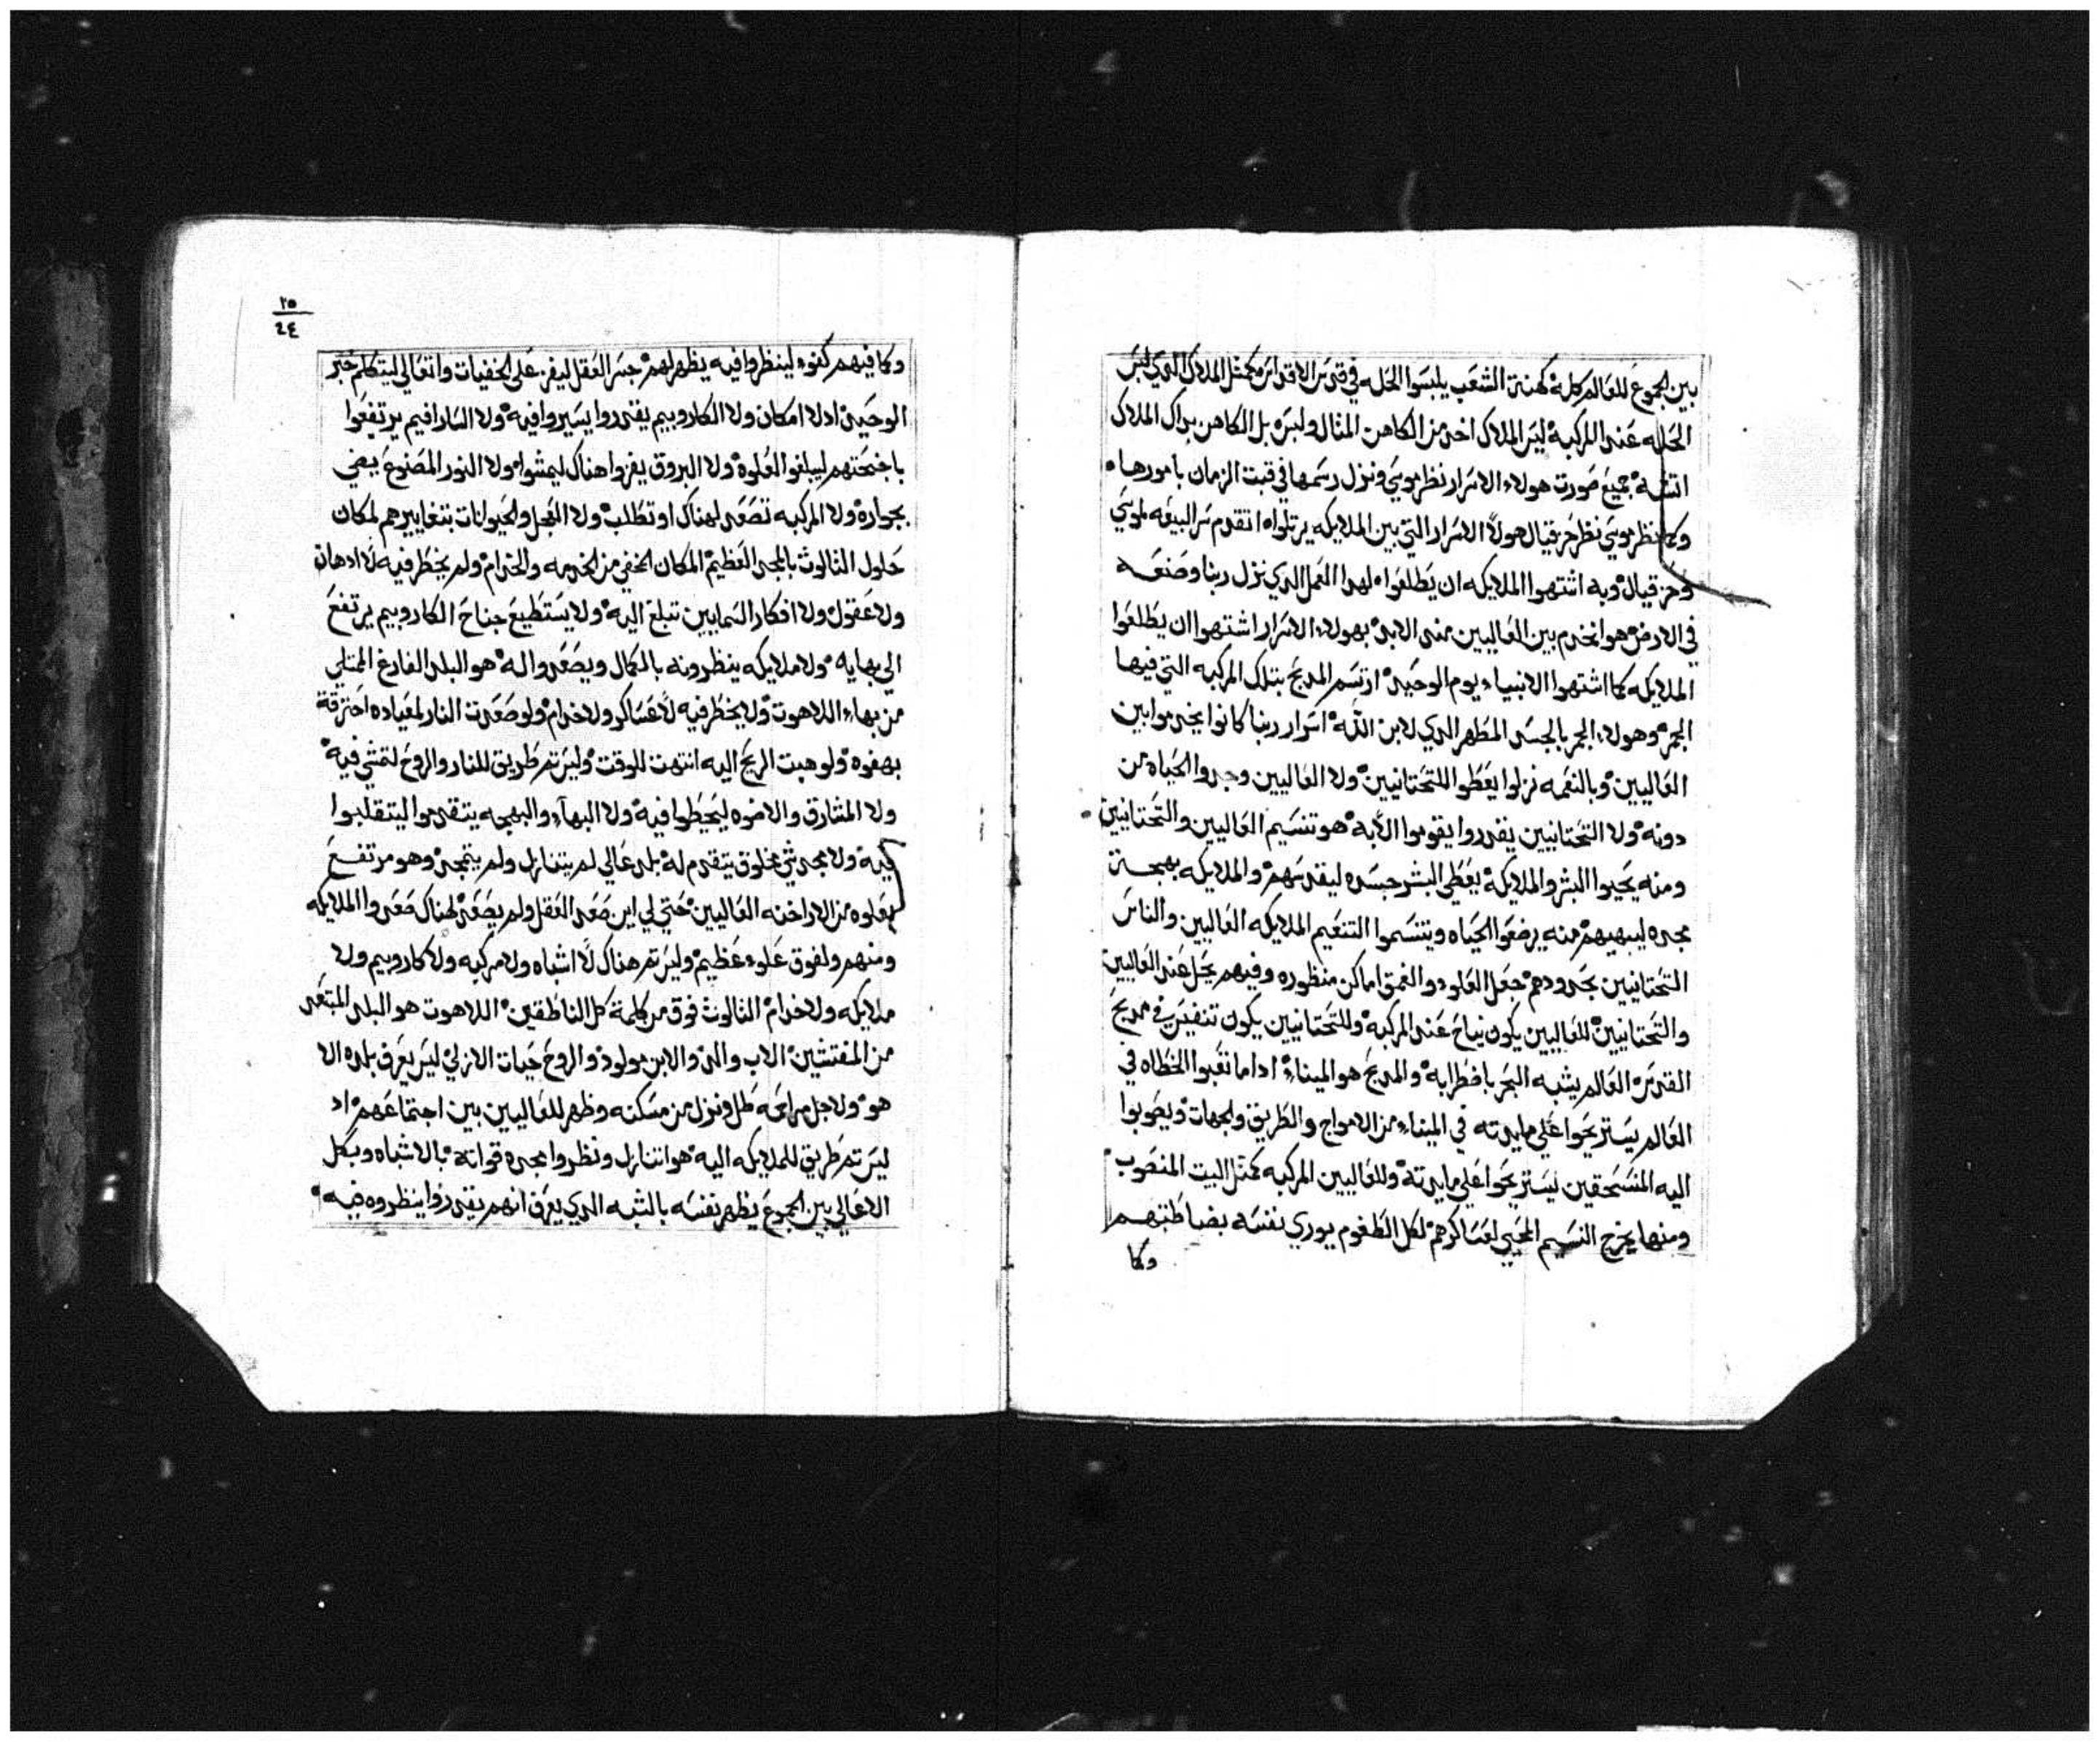 بين الجموع للعالم كله كهنة الشعب يلبسوا الحله في قدس الاقداس كمثل الملاك الدي لبس
الحله عند المركبة ليس الملاك اخد من الكاهن المثال ولبس بل الكاهن بداك الملاك
اتشبه جميع صورت هولاء الاسرار نظر موسي ونزل رسمها في قبت الزمان بامورها
وكما نظر موسي نظر حزقيال هولا الاسرار التي بين الملايكه يرتلواه اتقدم سر البيعه لموسي
وحزقيال وبه اشتهوا الملايكه ان يطلعواه لهدا العمل الدي نزل ربنا وصنعه
في الارض هو انخدم بين العاليين مند الابد بهولاء الاسرار اشتهوا ان يطلعوا
الملايكه كما اشتهوا الانبياء يوم الوحيد ارتسم المدبح بتلك المركبه التي فيها
الجمر وهولاء الجمر بالجسد المطهر الدي لابن الله اسرار ربنا كانوا يخدموا بين
العاليين وبالنعمه نزلوا يعطوا للتحتانيين ولا العاليين وجدوا الحياه من
دونه ولا التحتانيين يقدروا يقوموا الا به هو تنسيم العاليين والتحتانيين
ومنه يحيوا البشر والملايكه يعطي البشر جسده ليقدسهم والملايكه بهجة
مجده ليبهيهم منه يرضعوا الحياه ويتنسموا التنعيم الملايكه العاليين والناس
التحتانيين بحدودهم جعل العلو والعمق اماكن منظوره وفيهم يحل عند العاليين
والتحتانيين للعاليين يكون نياح عند المركبه وللتحتانيين يكون تنفيس في مدبح
القدس العالم يشبه البحر باضطرابه والمدبح هو الميناء ادا ما تعبوا الخطاه في
العالم يستريحوا علي مايدته في الميناء من الامواج والطريق والجهات ويصوبوا
اليه المنسحقين ليستريحوا علي مايدته وللعاليين المركبه كمثل البيت المنصوب
ومنها يخرج النسيم المحيي لعساكرهم لكل الطغوم يوري نفسه بضباطتهم
وكما
٢٥
٢٤
وكما فيهم كفوء لينظروا فيه يظهر لهم جسر العقل ليفز علي الخفيات واتعالي ليتكلم خبر
الوحيد اد لا امكان ولا الكاروبيم يقدروا يسيروا فيه ولا السارافيم يرتفعوا
باجنحتهم ليبلغوا العلوه ولا البروق يفزوا هناك ليمشوا ولا النور المصنوع يضي
بجواره ولا المركبه تصعد لهناك او تطلب ولا العجل والحيوانات بتغاييرهم لمكان
حلول الثالوث بالمجد العظيم المكان الخفي من الخدمه والخدام ولم يخطر فيه لا ادهان
ولا عقول ولا افكار السمايين تبلغ اليه ولا يستطيع جناح الكاروبيم يرتفع
الي بهايه ولا ملايكه ينظرونه بالكمال ويصعدوا له هو البلد الفارغ الممتلي
من بهاء اللاهوت ولا يخطر فيه لا عساكر ولا خدام ولو صعدت النار لمعياده احترقة
بهفوه ولو هبت الريح اليه انتهت للوقت وليس تم طريق للنار والروح لتمشي فيه
ولا المشارق والاضوه ليخطوا فيه ولا البهاء والبهجه يتقدموا ليتقلبوا
فيه ولا مجد شي مخلوق يتقدم له بلد عالي لم يتنازل ولم يتمجد وهو مرتفع
بعلوه من الاراخنه العاليين حتي لي اين صعد العقل ولم يصعد لهناك صعدوا الملايكه
ومنهم ولفوق علوء عظيم وليس تم هناك لا اشباه ولا مركبه ولا كاروبيم ولا
ملايكه ولا خدام الثالوث فوق من كلمة كل الناطقين اللاهوت هو البلد المبتعد
من المفتشين الاب والد والابن مولود والروح حيات الازلي ليس يعرف بلده الا
هو ولاجل مراحمه طل ونزل من مسكنه وظهر للعاليين بين اجتماعهم اد
ليس تم طريق للملايكه اليه هو اتنازل ونظروا مجده قواته بالاشباه وبكل
الاعالي بين الجموع يظهر نفسه بالشبه الدي يعرف انهم يقدروا ينظروه فيه